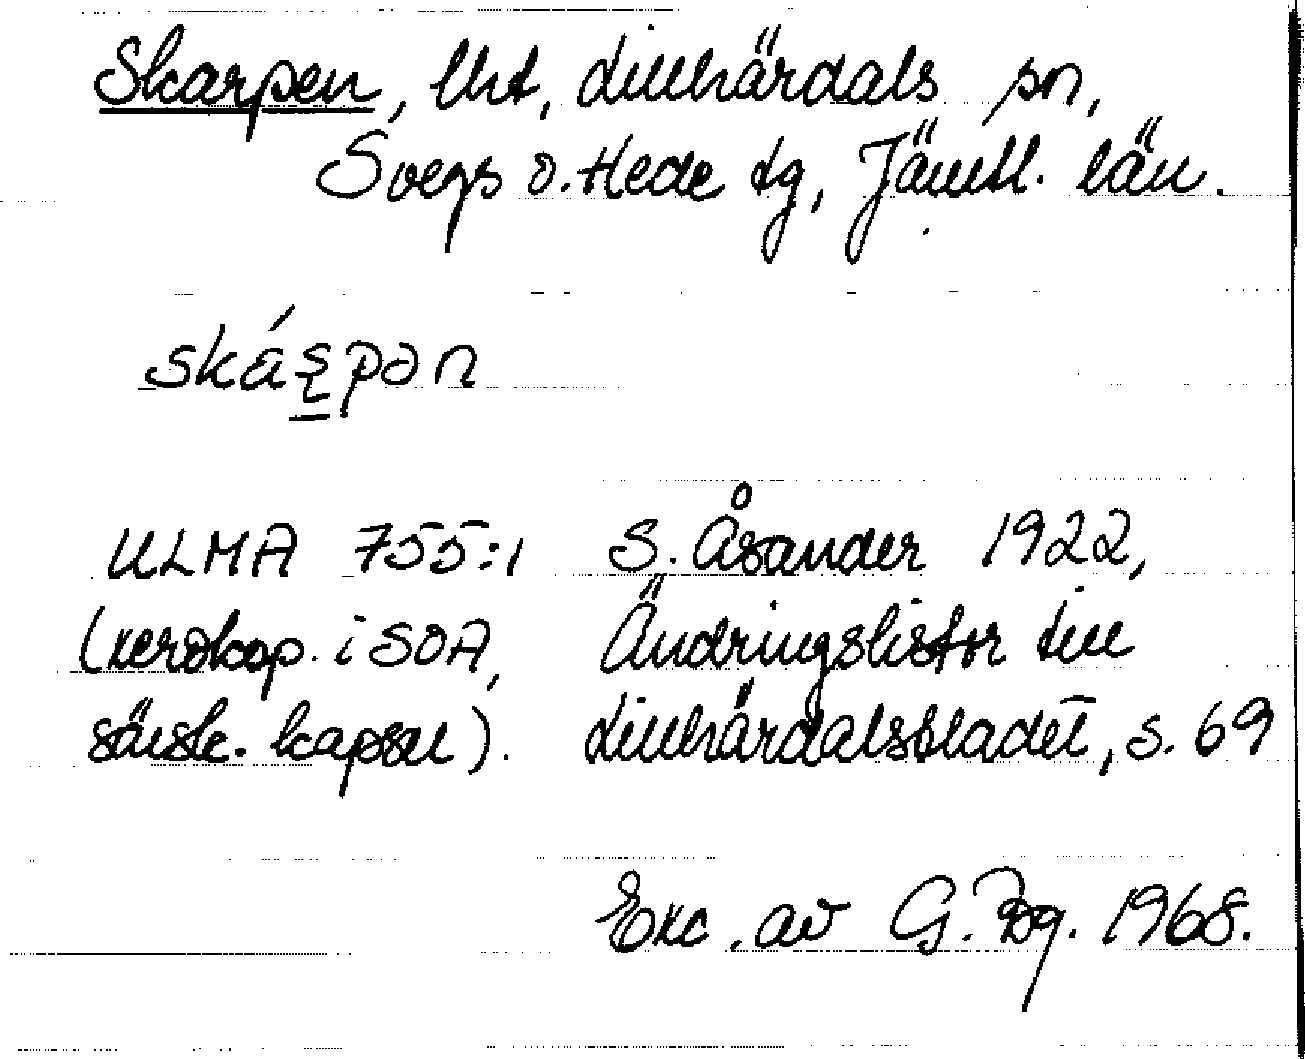 Skarpen, lht, Lillhärdals sn,
Svegs o. Hede tg, Jämtl. län.
skáʂpən
ULMA 755:1 S. Åsander 1922,
(xerokop. i SOA, Ändringslistor till
särsk. kapsel). Lillhärdalsbladet, s. 69
Exc. av G. Bg. 1968.